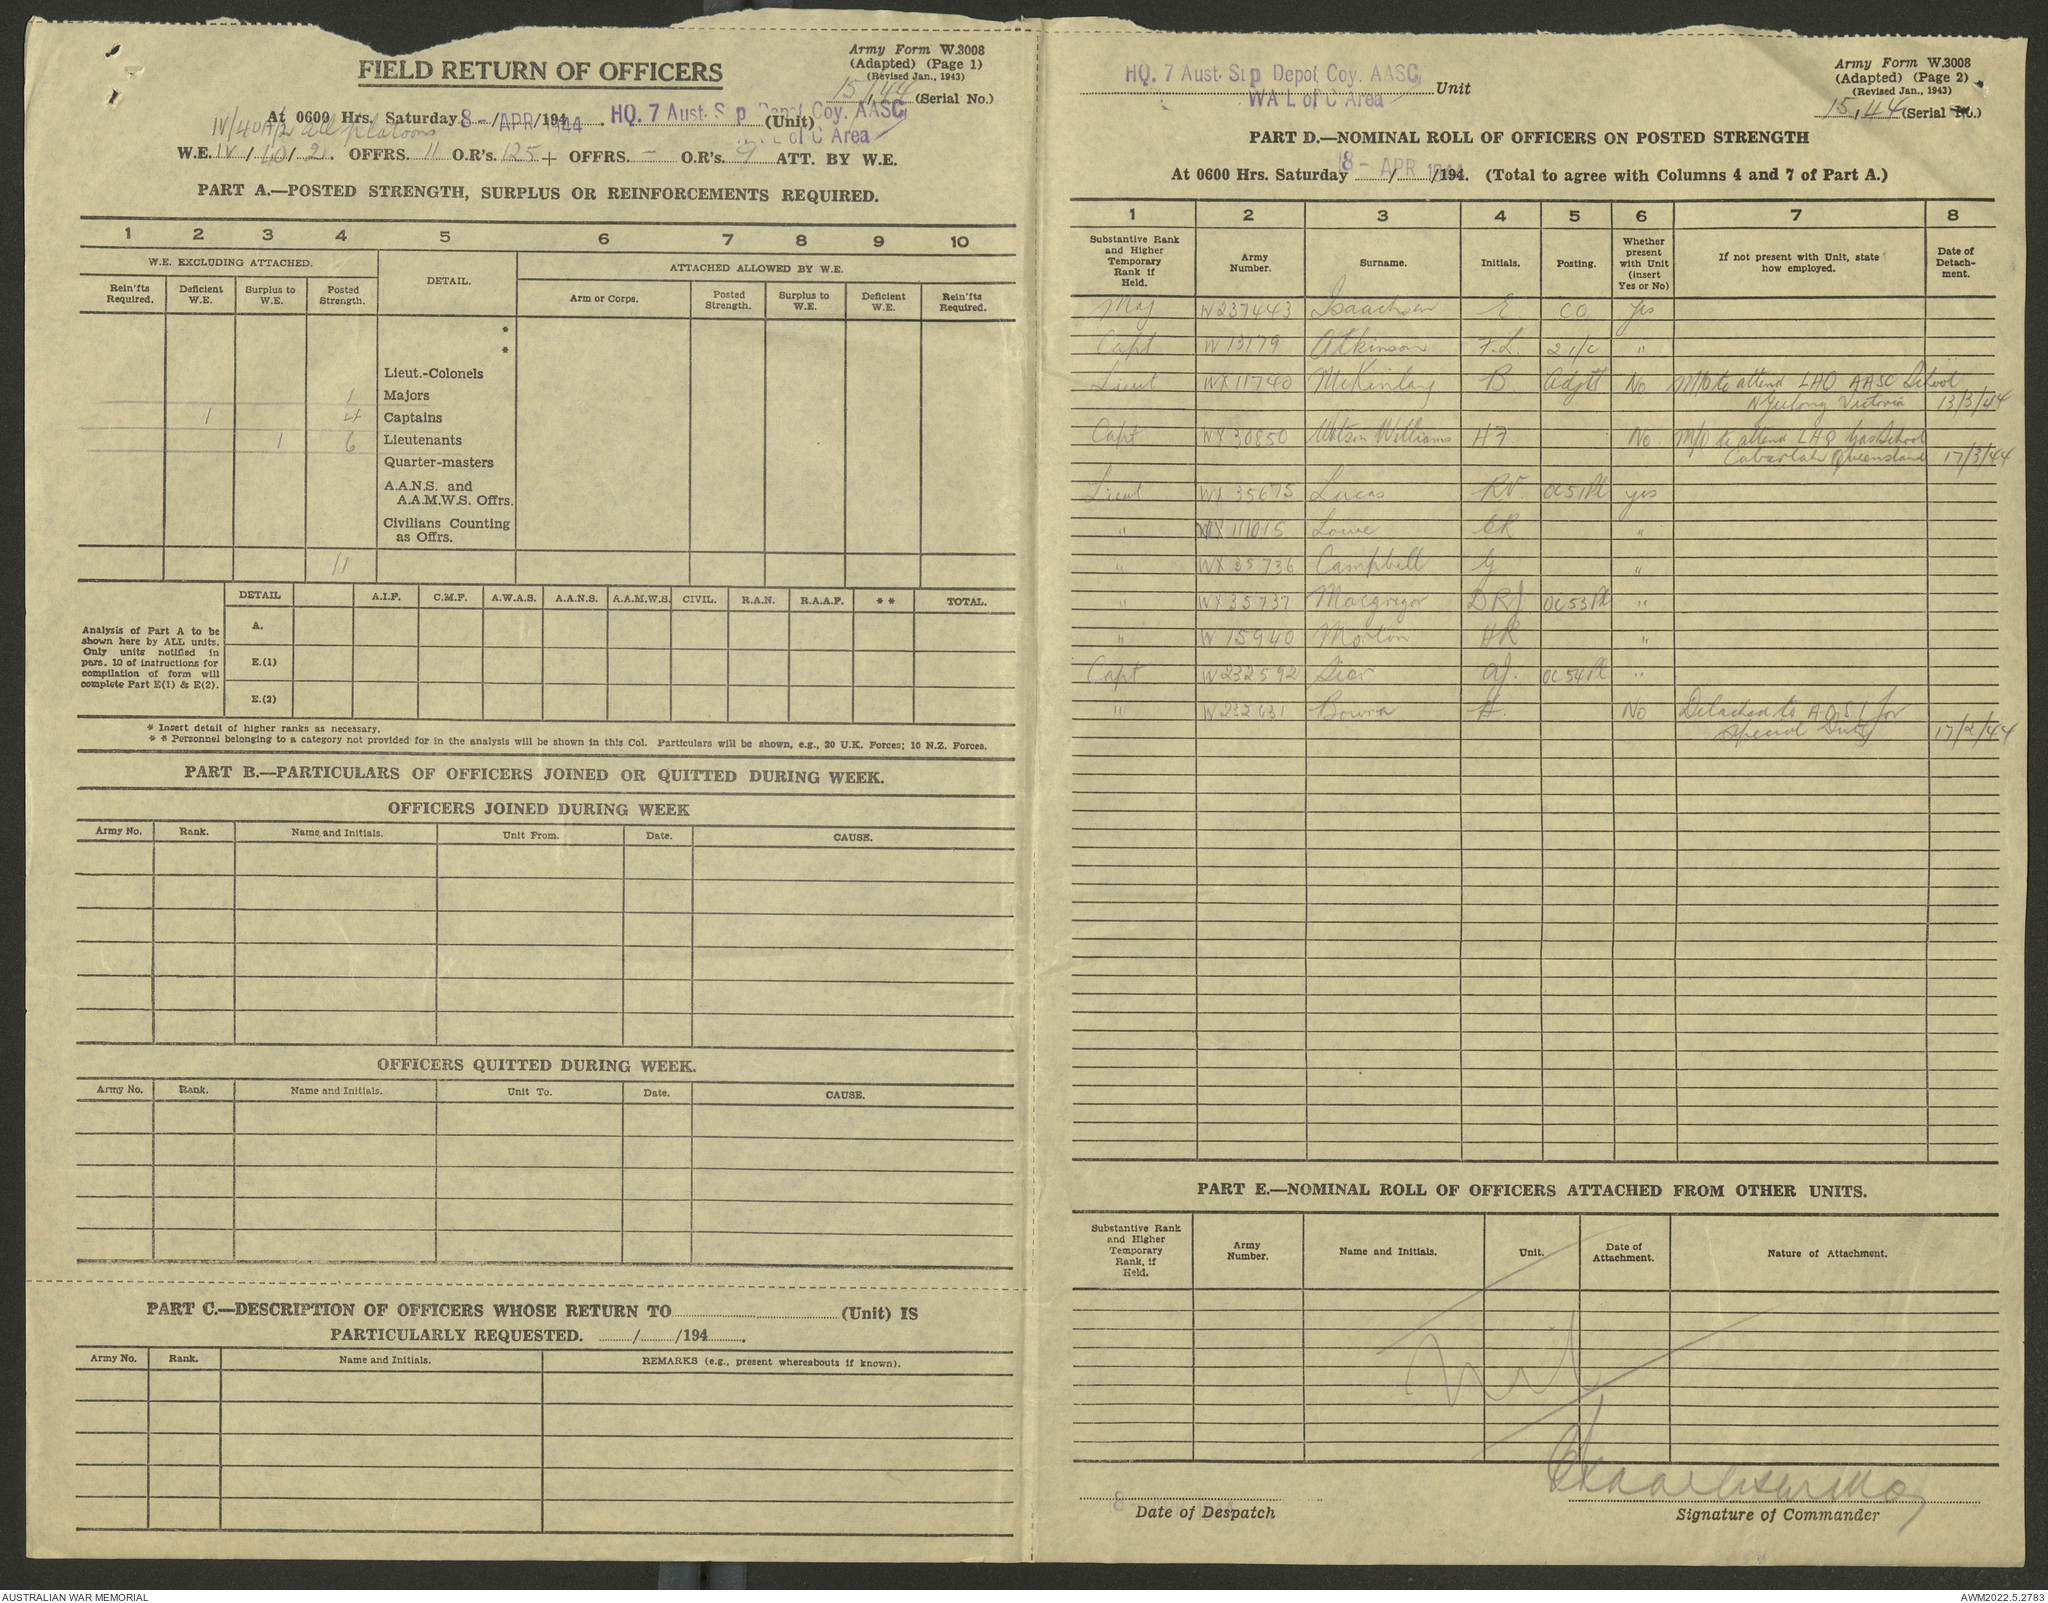 Army Form W.3008
(Adapted) (Page 1)
(Revised Jan., 1943)
15/44 (Serial No.)
FIELD RETURN OF OFFICERS
At 0600 Hrs. Saturday 8 - APR 1944 /194 HQ. 7 Aust. Sup Depot Coy. AASC (Unit)
L of C Area
IV/40A/2 all platoons
W.E. IV / 40 / 2. OFFRS. 11 O.R's. 125 + OFFRS. - O.R's. 9 ATT. BY W.E.
PART A.—POSTED STRENGTH, SURPLUS OR REINFORCEMENTS REQUIRED.
1 2 3 4 5 6 7 8 9 10
W.E. EXCLUDING ATTACHED. DETAIL. ATTACHED ALLOWED BY W.E.
Rein'fts Required. Deficient W.E. Surplus to W.E. Posted Strength. Arm or Corps. Posted Strength. Surplus to W.E. Deficient W.E. Rein'fts Required.
*
*
Lieut.-Colonels
1 Majors
1 4 Captains
1 6 Lieutenants
Quarter-masters
A.A.N.S. and
A.A.M.W.S. Offrs.
Civilians Counting
as Offrs.
11
DETAIL A.I.F. C.M.F. A.W.A.S. A.A.N.S. A.A.M.W.S. CIVIL. R.A.N. R.A.A.F. * * TOTAL.
Analysis of Part A to be
shown here by ALL units.
Only units notified in
pars. 10 of instructions for
compilation of form will
complete Part E(1) & E(2).
A.
E.(1)
E.(2)
* Insert detail of higher ranks as necessary.
* * Personnel belonging to a category not provided for in the analysis will be shown in this Col. Particulars will be shown, e.g., 20 U.K. Forces; 10 N.Z. Forces.
PART B.—PARTICULARS OF OFFICERS JOINED OR QUITTED DURING WEEK.
OFFICERS JOINED DURING WEEK
Army No. Rank. Name and Initials. Unit From. Date. CAUSE.
OFFICERS QUITTED DURING WEEK.
Army No. Rank. Name and Initials. Unit To. Date. CAUSE.
PART C.—DESCRIPTION OF OFFICERS WHOSE RETURN TO (Unit) IS
PARTICULARLY REQUESTED. / /194 .
Army No. Rank. Name and Initials. REMARKS (e.g., present whereabouts if known).
Army Form W.3008
(Adapted) (Page 2)
(Revised Jan., 1943)
15/44 (Serial No.)
HQ. 7 Aust. Sup Depot Coy. AASC Unit
WA L of C Area
PART D.—NOMINAL ROLL OF OFFICERS ON POSTED STRENGTH
At 0600 Hrs. Saturday 8 - APR 1944 /194. (Total to agree with Columns 4 and 7 of Part A.)
1 2 3 4 5 6 7 8
Substantive Rank and Higher Temporary Rank if Held. Army Number. Surname. Initials. Posting. Whether present with Unit (insert Yes or No) If not present with Unit, state how employed. Date of Detachment.
Maj W237443 Isaachsen E CO Yes
Capt W13179 Atkinson F.L. 2 i/c "
Lieut WX11740 McKinlay B. Adjtt No M/O to attend LHQ AASC School
Victoria 13/3/44
Capt WX30850 Watson Williams HF. No M/O to attend LHQ Gas School
Cabarlah Queensland 17/3/44
Lieut WX35675 Lucas RV OC 51 Pl yes
" WX111015 Lowe CR "
" WX35736 Campbell G "
" WX35737 Macgregor DRJ OC 53 Pl "
" W15940 Morton HR "
Capt W232592 AJ. OC 54 Pl "
" W232631 H. No Detached to for
special Duty 17/2/44
PART E.—NOMINAL ROLL OF OFFICERS ATTACHED FROM OTHER UNITS.
Substantive Rank and Higher Temporary Rank, if Held. Army Number. Name and Initials. Unit. Date of Attachment. Nature of Attachment.
Nil
8
EIsaachsen Maj
Date of Despatch Signature of Commander
AUSTRALIAN WAR MEMORIAL AWM2022.5.2783